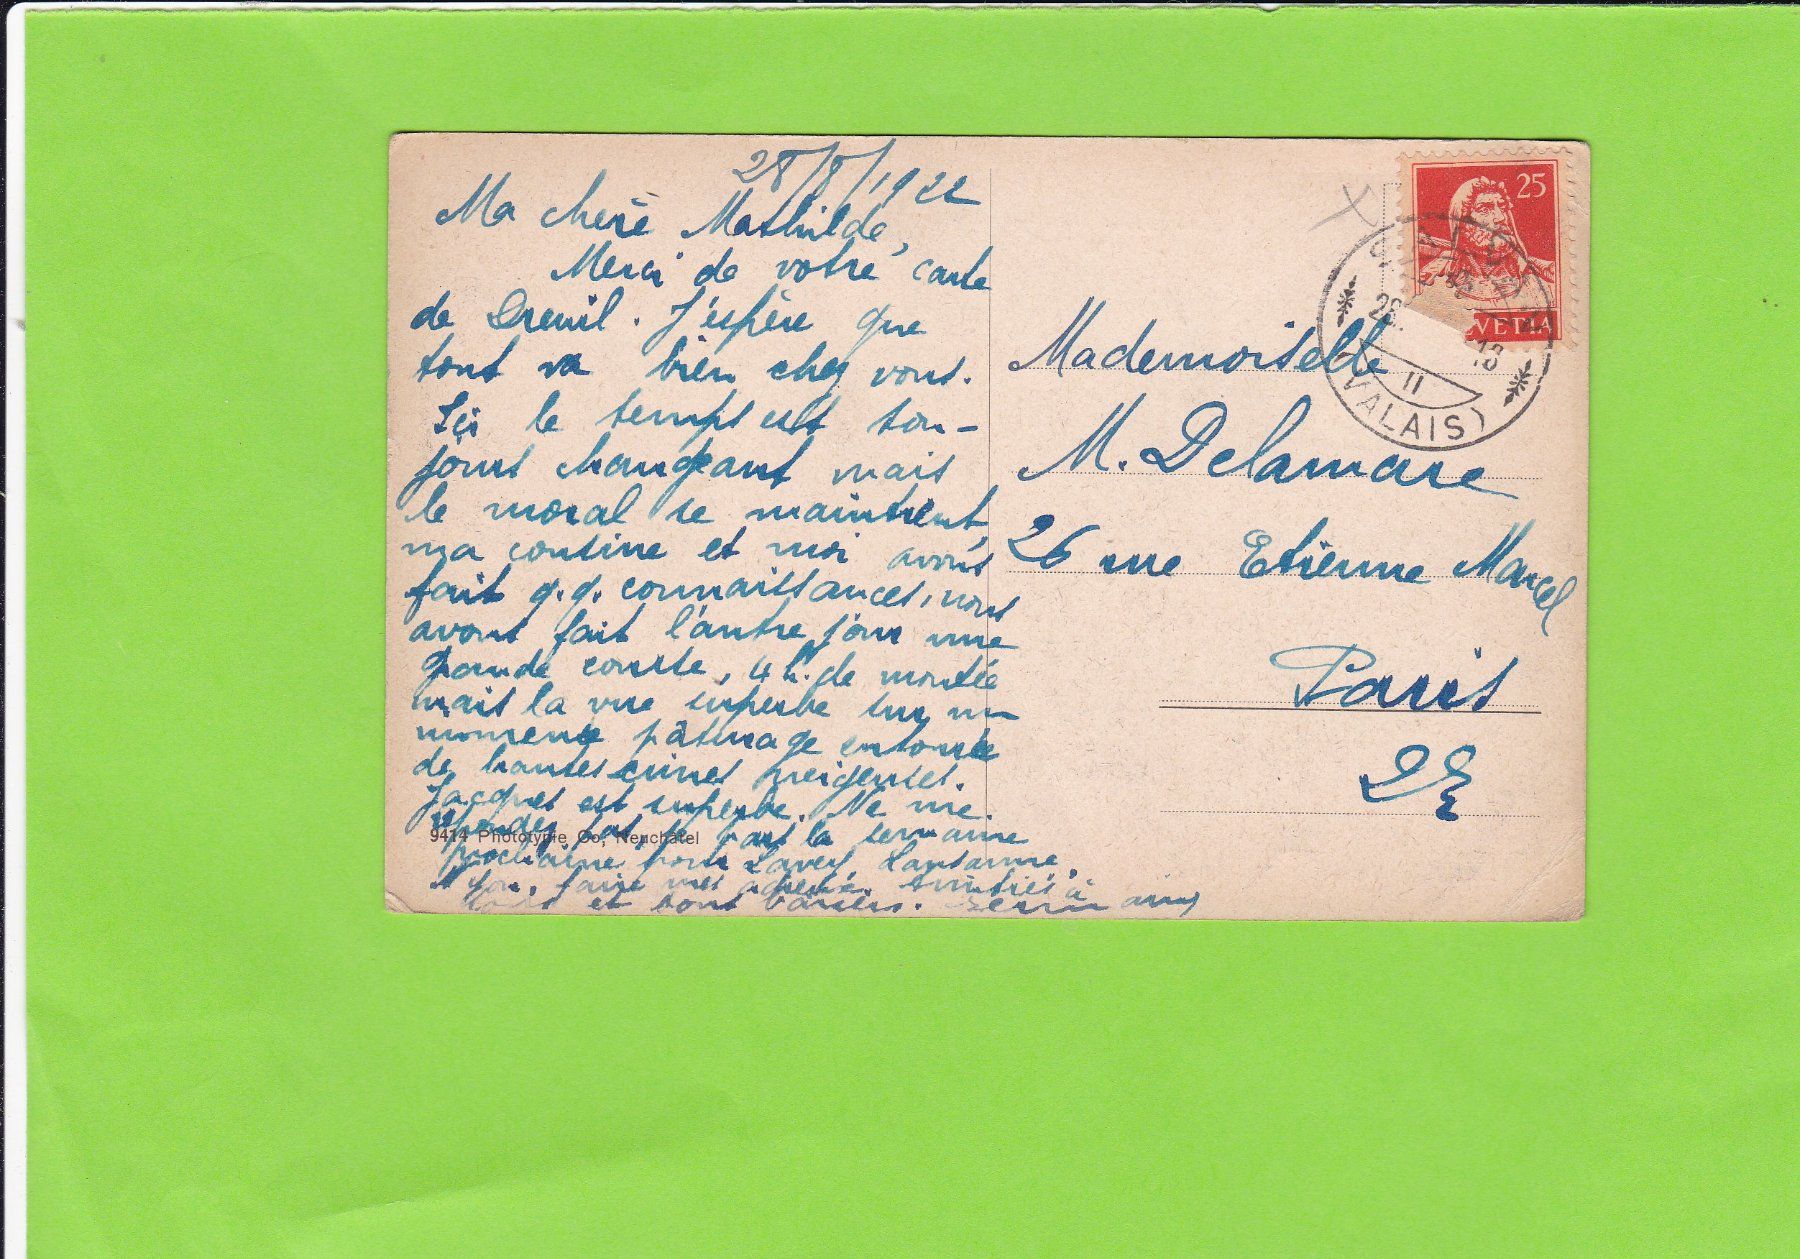 28/8/1922
Ma chère Mathilde,
Merci de votre carte
de Dreuil. J'espère que
tout va bien chez vous.
Ici le temps est tou-
jours changeant mais
le moral se maintient,
ma cousine et moi avons
fait q.q. connaissances, nous
avons fait l'autre jour une
grande course, 4 h. de montée
mais la vue superbe sur un
immense pâturage entourée
de hautes cimes neigeuses.
Jacques est superbe. Ne me
répondez pas je pars la semaine
prochaine pour Lavey, Lausanne,
Nyon, faire mes adieux. Amitiés à
tous et bons baisers. Germaine
9414 Phototypie Co, Neuchâtel
25
HELVETIA
28.
18
II
(VALAIS)
Mademoiselle
M. Delamare
26 rue Etienne Marcel
Paris
2E